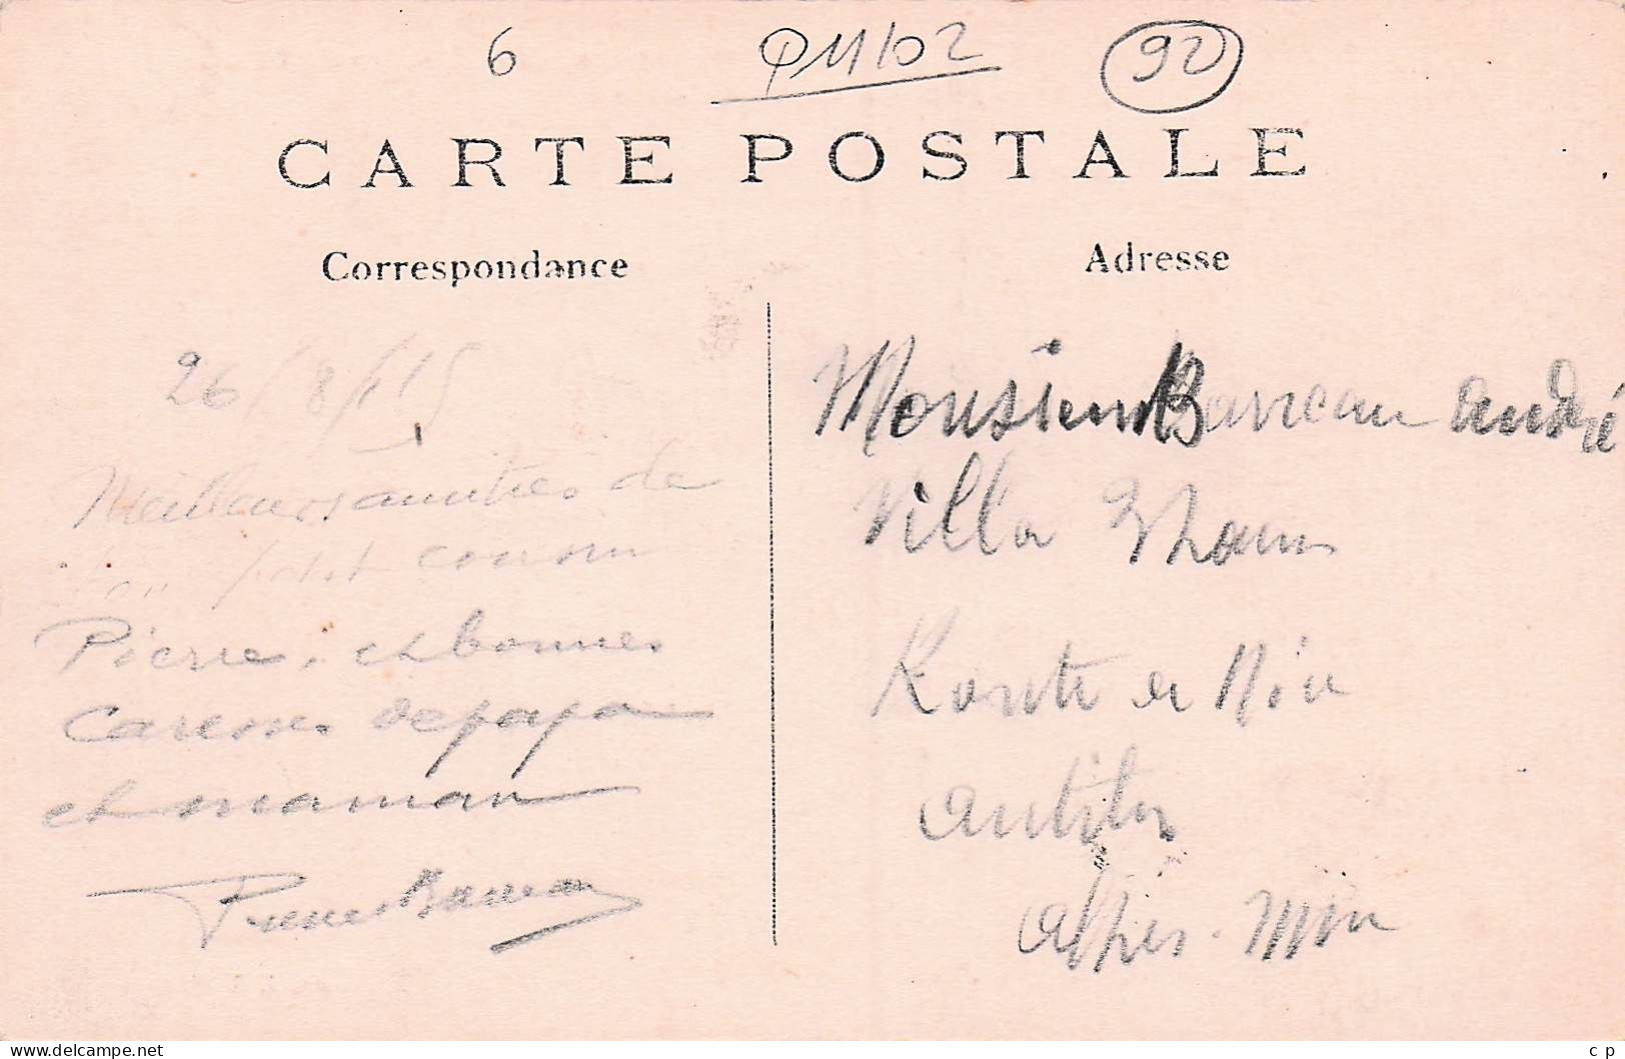 6 92
CARTE POSTALE
Correspondance
Adresse
26/8/15
Meilleurs amitiés de
petit cousin
Pierre, et bonnes
Caresses de papa
et maman
Pierre Barreau
Monsieur Barreau André
Villa
Route de Nice
Antibes
Alpes-Mmes
delcampe.net
c p